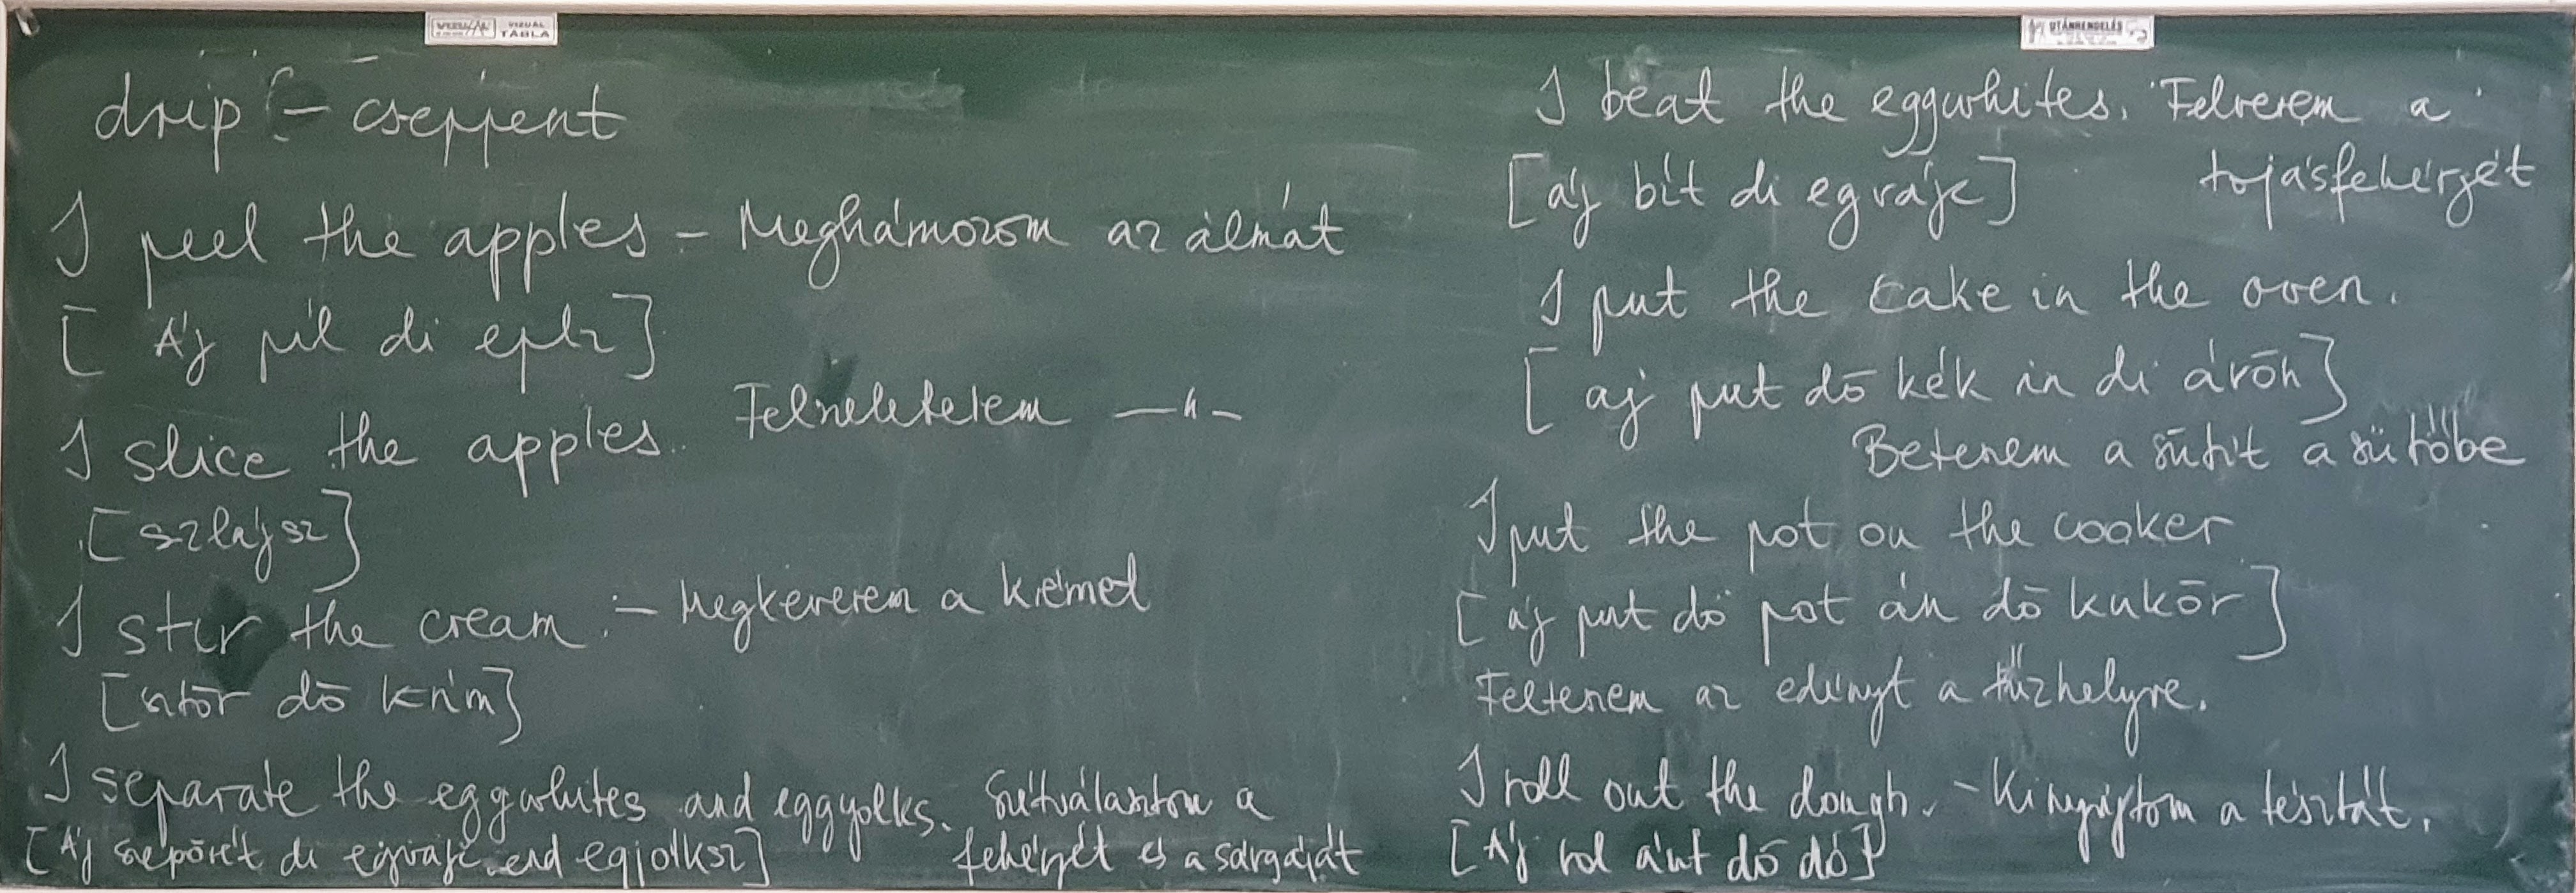 VIZUÁL TÁBLA
UTÁNRENDELÉS
drip - cseppent
I peel the apples - Meghámozom az almát
[Áj píl di eplz]
I slice the apples. Felszeletelem —"—
[szlájsz]
I stir the cream. - Megkeverem a krémet
[sztőr dö krím]
I separate the eggwhites and eggyolks. Szétválasztom a
fehérjét és a sárgáját
[Áj szepöré't di egvájc end egjolksz]
I beat the eggwhites. Felverem a
tojásfehérjét
[áj bít di egvájc]
I put the cake in the oven.
[áj put dö kék in di ávön]
Beteszem a sütit a sütőbe
I put the pot on the cooker
[áj put dö pot án dö kukör]
Felteszem az edényt a tűzhelyre.
I roll out the dough. - Kinyújtom a tésztát.
[Áj rol áut dö dó]